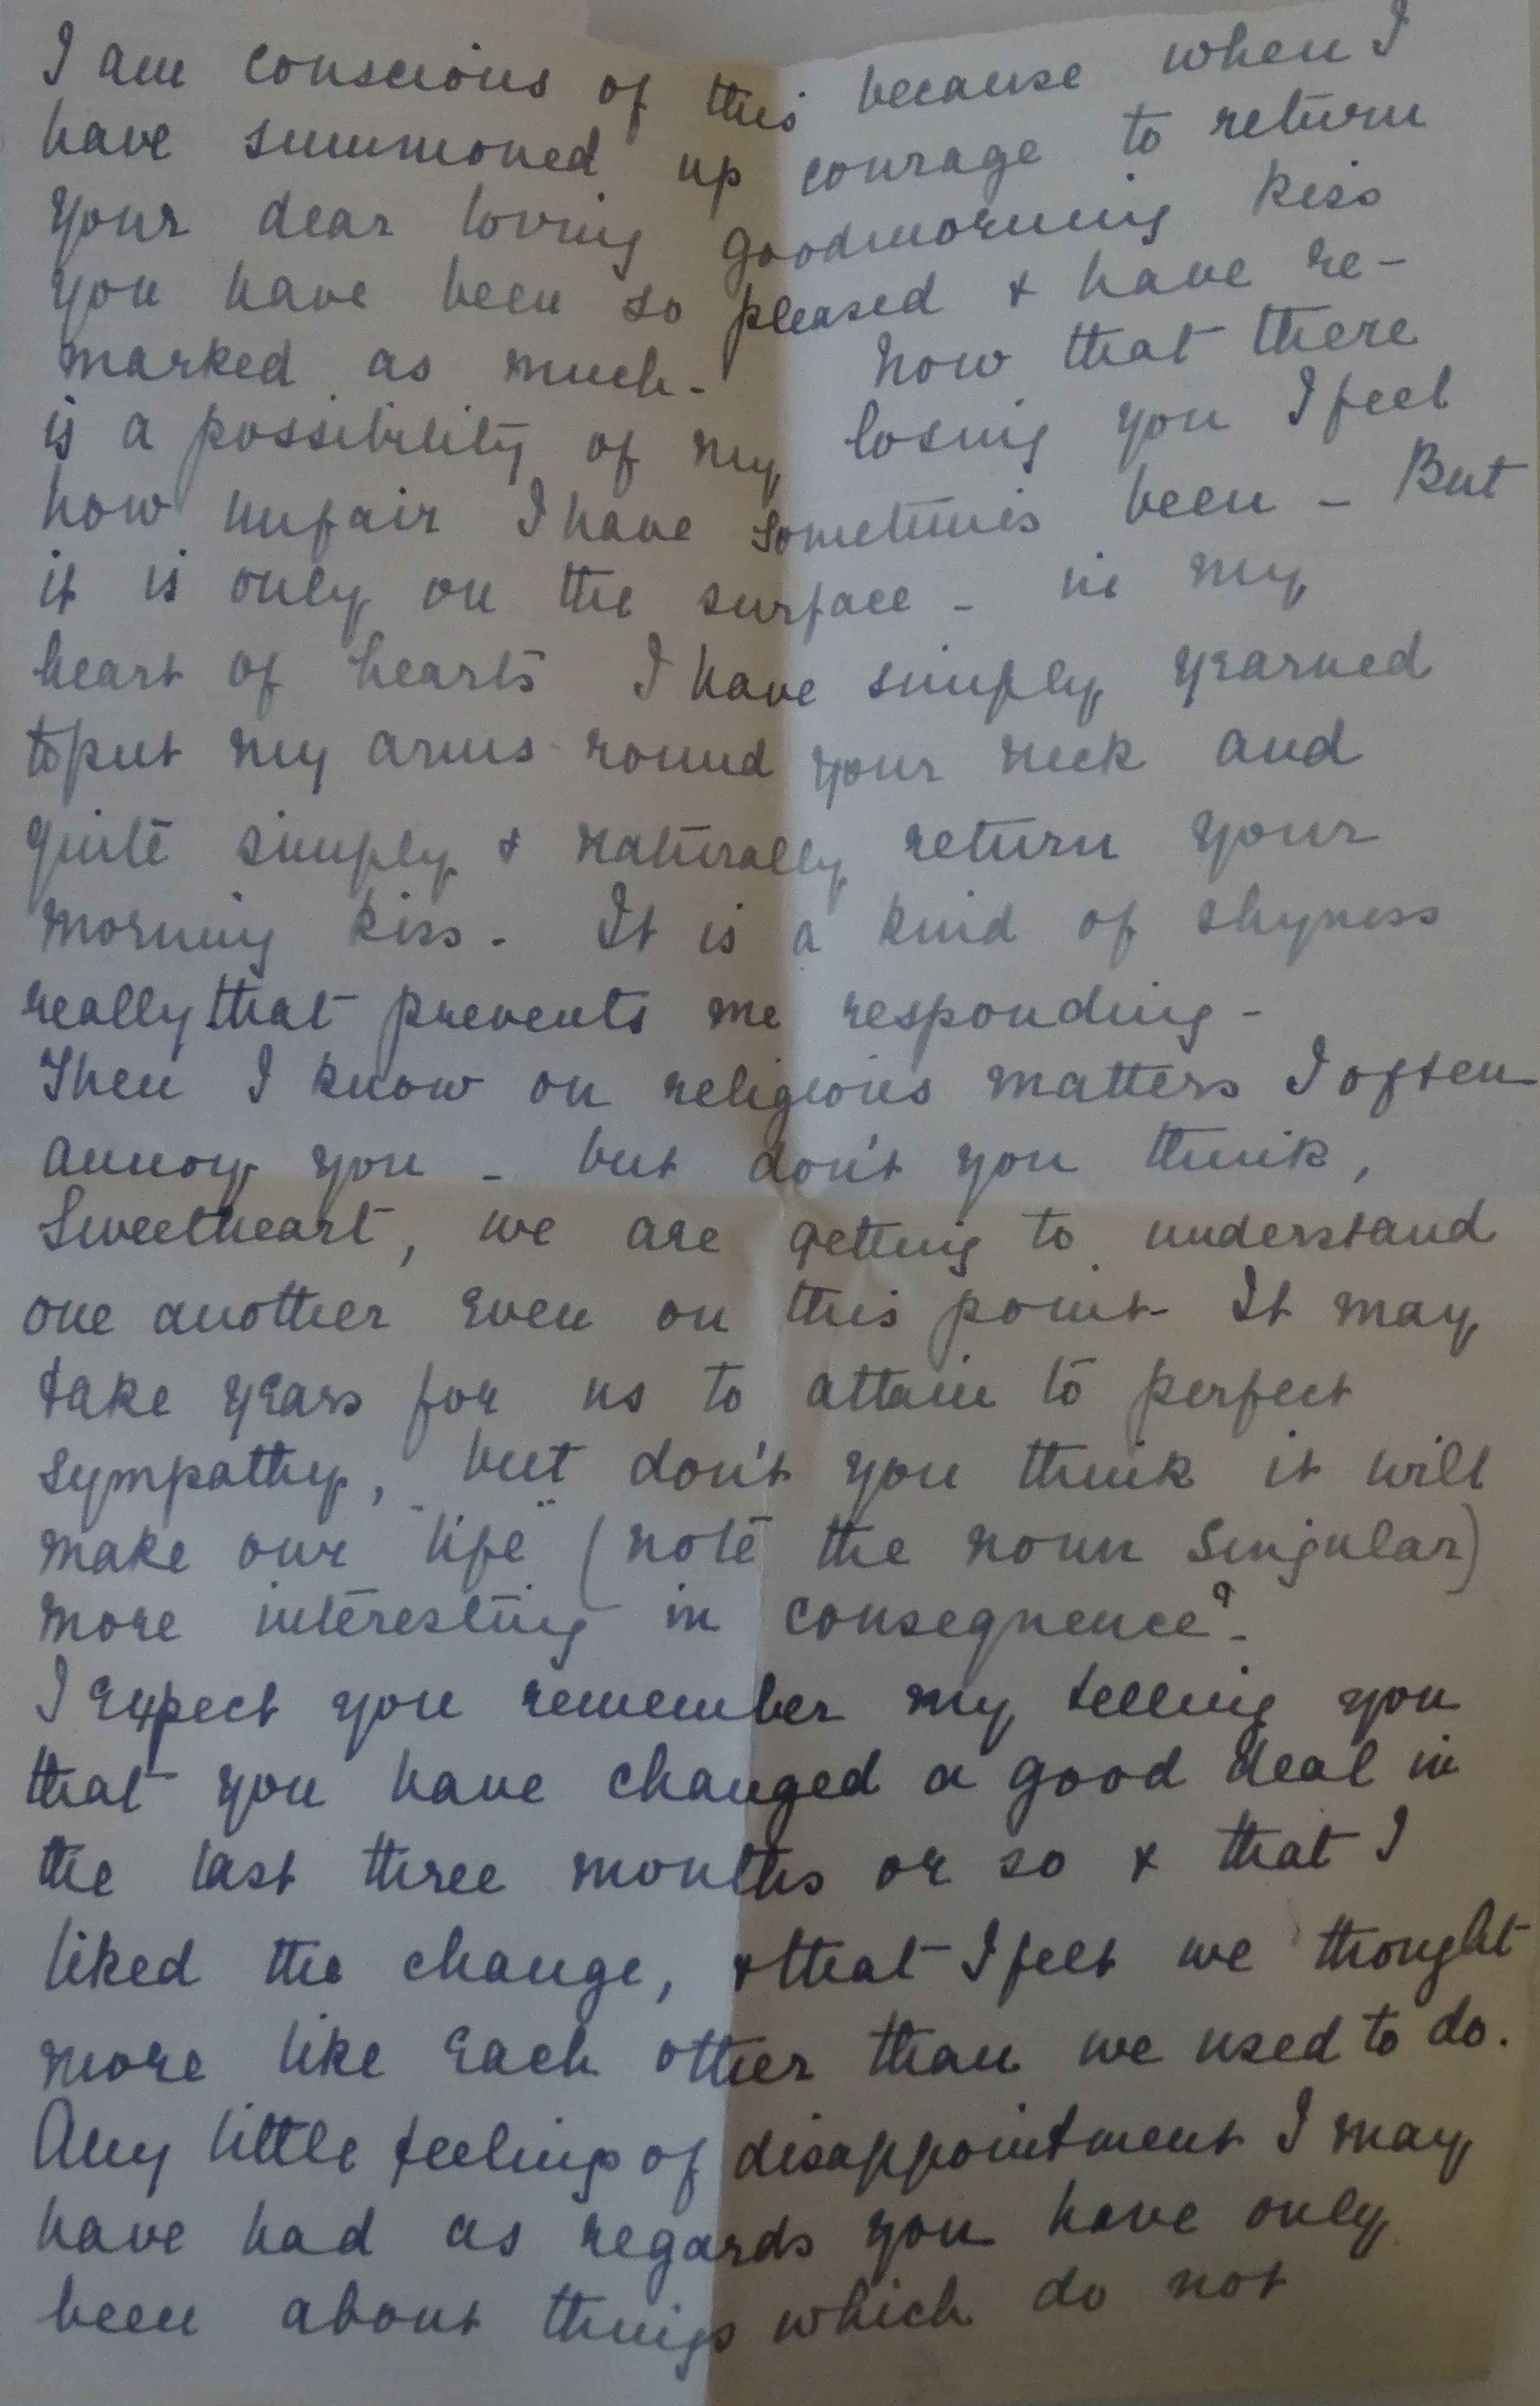 I am conscious of this because when I
have summoned up courage to return
your dear loving goodmorning kiss
you have been so pleased & have re-
marked as much. Now that there
is a possibility of my losing you I feel
how unfair I have sometimes been - But
it is only on the surface - in my
heart of hearts I have simply yearned
to put my arms round your neck and
quite simply & naturally return your
morning kiss. It is a kind of shyness
really that prevents me responding -
Then I know on religious matters I often
annoy you - but don't you think,
Sweetheart, we are getting to understand
one another even on this point. It may
take years for us to attain to perfect
sympathy, but don't you think it will
make our "life" (note the noun singular)
more interesting in consequence? -
I expect you remember my telling you
that you have changed a good deal in
the last three months or so & that I
liked the change, & that I felt we thought
more like each other than we used to do.
Any little feelings of disappointment I may
have had as regards you have only
been about things which do not